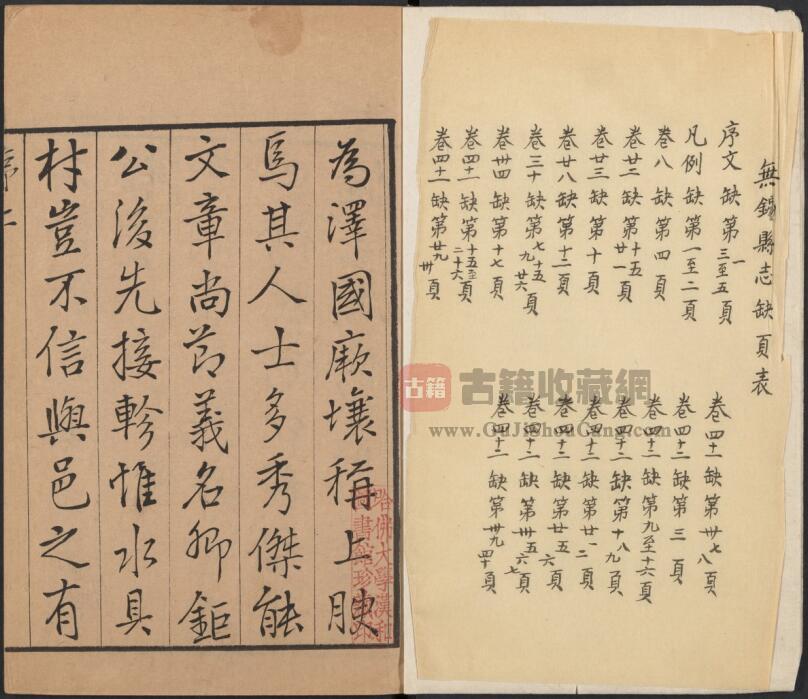 無錫縣志缺頁表
序文缺第一三至五頁
凡例缺第一至二頁
卷八缺第四頁
卷廿二缺第十五廿一頁
卷廿三缺第十頁
卷廿八缺第十二頁
卷三十缺第七十五九廿六頁
卷卅四缺第十七頁
卷四十一缺第十五至二十六頁
卷四十一缺第廿九卅頁
卷四十一缺第卅七八頁
卷四十二缺第三頁
卷四十二缺第九至十六頁
卷四十二缺第十八九頁
卷四十二缺第廿一二頁
卷四十二缺第廿五六頁
卷四十二缺第卅五六七頁
卷四十二缺第卅九四十頁
為澤國厥壤稱上腴
焉其人士多秀傑能
文章尚節義名卿鉅
公後先接軫惟水具
材豈不信與邑之有
序二
古籍
古籍收藏網
www.GuJiShouCang.com
哈佛大學漢和
圖書館珍藏印